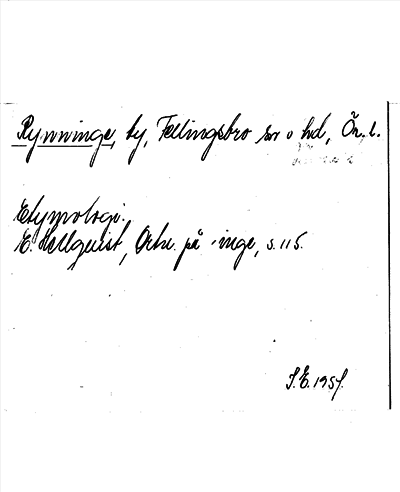 Rynninge, by, Fellingsbro sn o hd, Ör. l.
Etymologi:
E. Hellquist, Ortn. på -inge, s. 115.
S.E. 1957.